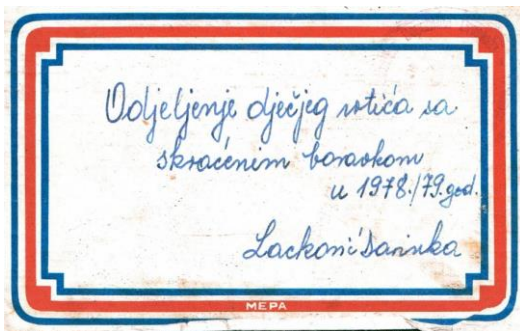 Odjeljenje dječjeg vrtića sa
skraćenim boravkom
u 1978./79. god.
Lacković Darinka
MEPA